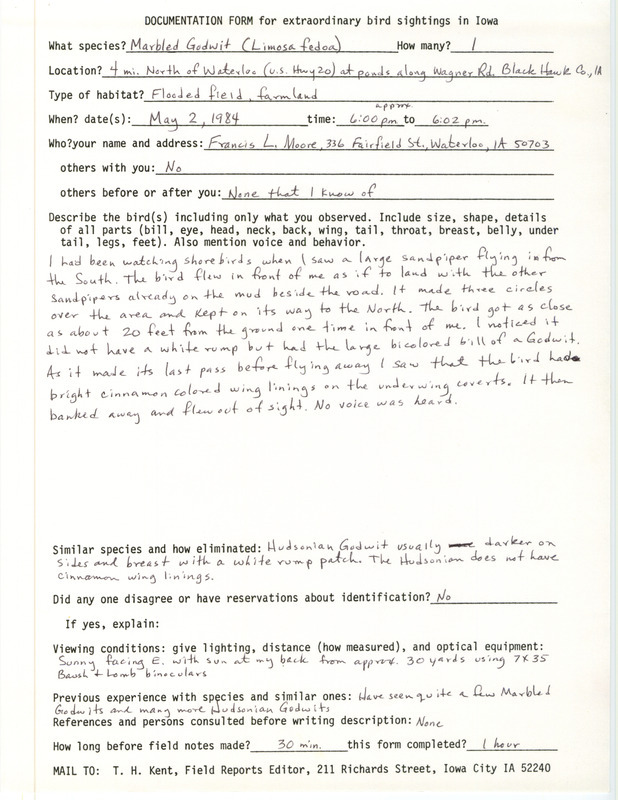 DOCUMENTATION FORM for extraordinary bird sightings in Iowa
What species? Marbled Godwit (Limosa fedoa) How many? 1
Location? 4 mi. North of Waterloo (U.S. Hwy 20) at ponds along Wagner Rd. Black Hawk Co., IA
Type of habitat? Flooded field, farmland
When? date(s): May 2, 1984 time: approx. 6:00 pm to 6:02 pm.
Who? your name and address: Francis L. Moore, 336 Fairfield St., Waterloo, IA 50703
others with you: No
others before or after you: None that I know of
Describe the bird(s) including only what you observed. Include size, shape, details
of all parts (bill, eye, head, neck, back, wing, tail, throat, breast, belly, under
tail, legs, feet). Also mention voice and behavior.
I had been watching shorebirds when I saw a large sandpiper flying in from
the South. The bird flew in front of me as if to land with the other
sandpipers already on the mud beside the road. It made three circles
over the area and kept on its way to the North. The bird got as close
as about 20 feet from the ground one time in front of me. I noticed it
did not have a white rump but had the large bicolored bill of a Godwit.
As it made its last pass before flying away I saw that the bird had
bright cinnamon colored wing linings on the underwing coverts. It then
banked away and flew out of sight. No voice was heard.
Similar species and how eliminated: Hudsonian Godwit usually darker on
sides and breast with a white rump patch. The Hudsonian does not have
cinnamon wing linings.
Did any one disagree or have reservations about identification? No
If yes, explain:
Viewing conditions: give lighting, distance (how measured), and optical equipment:
Sunny facing E. with sun at my back from approx. 30 yards using 7x35
Baush & Lomb binoculars
Previous experience with species and similar ones: Have seen quite a few Marbled
Godwits and many more Hudsonian Godwits
References and persons consulted before writing description: None
How long before field notes made? 30 min. this form completed? 1 hour
MAIL TO: T. H. Kent, Field Reports Editor, 211 Richards Street, Iowa City IA 52240